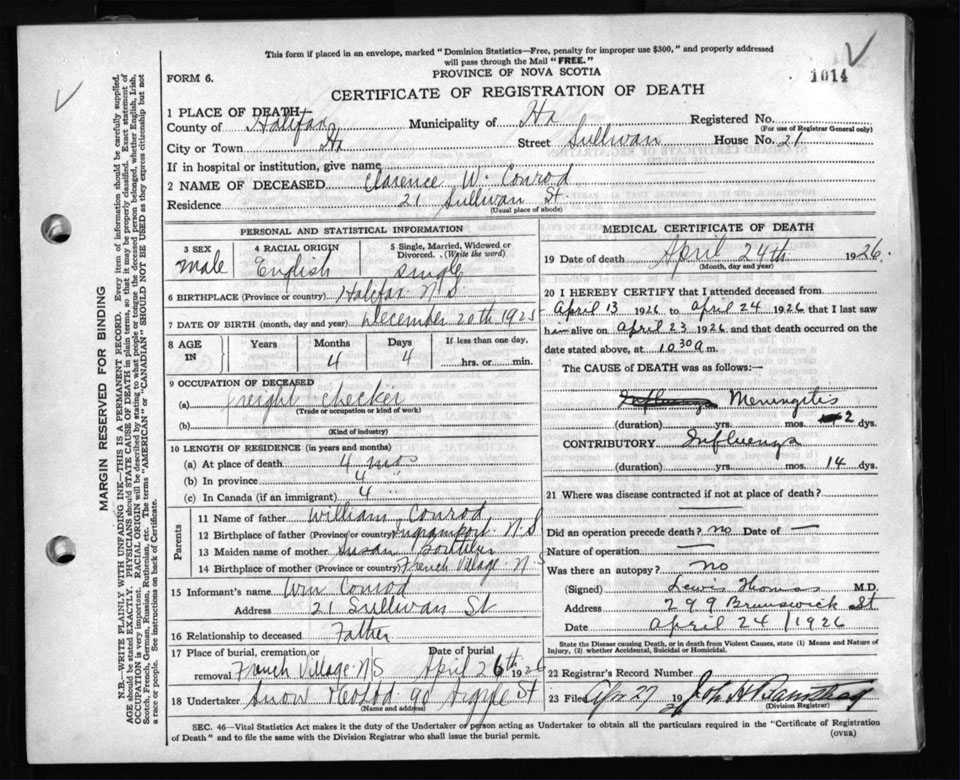 This form if placed in an envelope, marked "Dominion Statistics—Free, penalty for improper use $300," and properly addressed
will pass through the Mail "FREE."
PROVINCE OF NOVA SCOTIA
1014
FORM 6.
CERTIFICATE OF REGISTRATION OF DEATH
1 PLACE OF DEATH
County of Halifax Municipality of Hx Registered No.
(For use of Registrar General only)
City or Town Hx Street Sullivan House No. 21
If in hospital or institution, give name
2 NAME OF DECEASED Clarence W. Conrod
Residence 21 Sullivan St.
(Usual place of abode)
PERSONAL AND STATISTICAL INFORMATION
3 SEX
male
4 RACIAL ORIGIN
English
5 Single, Married, Widowed or
Divorced. (Write the word)
single
6 BIRTHPLACE (Province or country) Halifax N S
7 DATE OF BIRTH (month, day and year) December 20th 1925
8 AGE IN
Years Months Days If less than one day,
4 4 hrs. or min.
9 OCCUPATION OF DECEASED
(a) freight checker
(Trade or occupation or kind of work)
(b)
(Kind of industry)
10 LENGTH OF RESIDENCE (in years and months)
(a) At place of death 4 mos
(b) In province 4 "
(c) In Canada (if an immigrant) 4 "
Parents
11 Name of father William Conrod
12 Birthplace of father (Province or country) Ingramport N.S
13 Maiden name of mother Susan Boutilier
14 Birthplace of mother (Province or country) French Village N.S
15 Informant's name Wm Conrod
Address 21 Sullivan St
16 Relationship to deceased Father
17 Place of burial, cremation or Date of burial
removal French Village NS April 26th 1926
18 Undertaker Snow 90 Argyle St
(Name and address)
MEDICAL CERTIFICATE OF DEATH
19 Date of death April 24th 1926.
(Month, day and year)
20 I HEREBY CERTIFY that I attended deceased from
April 13 1926 to April 24 1926 that I last saw
him alive on April 23 1926 and that death occurred on the
date stated above, at 10 30 a m.
The CAUSE of DEATH was as follows:—
Influenza Meningitis
(duration) yrs. mos. 2 dys.
CONTRIBUTORY Influenza
(duration) yrs. mos. 14 dys.
21 Where was disease contracted if not at place of death?
Did an operation precede death? no Date of —
Nature of operation —
Was there an autopsy? no
(Signed) Lewis Thomas M.D.
Address 299 Brunswick St
Date April 24 / 1926
State the Disease causing Death, or in Death from Violent Causes, state (1) Means and Nature of
Injury, (2) whether Accidental, Suicidal or Homicidal.
22 Registrar's Record Number
23 Filed Apr 27 19 John H
(Division Registrar)
SEC. 46—Vital Statistics Act makes it the duty of the Undertaker or person acting as Undertaker to obtain all the particulars required in the "Certificate of Registration
of Death" and to file the same with the Division Registrar who shall issue the burial permit.
(OVER)
MARGIN RESERVED FOR BINDING
N.B.—WRITE PLAINLY WITH UNFADING INK—THIS IS A PERMANENT RECORD. Every item of information should be carefully supplied.
AGE should be stated EXACTLY. PHYSICIANS should STATE CAUSE OF DEATH in plain terms, so that it may be properly classified. Exact statement of
OCCUPATION is very important. RACIAL ORIGIN will be described by stating to what people or tongue the deceased person belonged, whether English, Irish,
Scotch, French, German, Russian, Ruthenian, etc. The terms "AMERICAN" or "CANADIAN" SHOULD NOT BE USED as they express citizenship but not
a race or people. See instructions on back of Certificate.